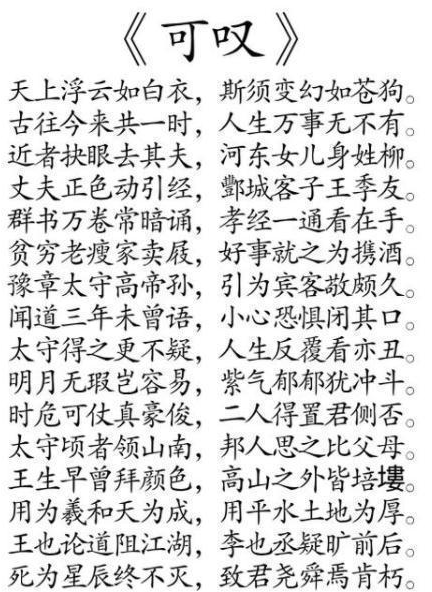 《可叹》
天上浮云如白衣，斯须变幻如苍狗。
古往今来共一时，人生万事无不有。
近者抉眼去其夫，河东女儿身姓柳。
丈夫正色动引经，酆城客子王季友。
群书万卷常暗诵，孝经一通看在手。
贫穷老瘦家卖屐，好事就之为携酒。
豫章太守高帝孙，引为宾客敬颇久。
闻道三年未曾语，小心恐惧闭其口。
太守得之更不疑，人生反覆看亦丑。
明月无瑕岂容易，紫气郁郁犹冲斗。
时危可仗真豪俊，二人得置君侧否。
太守顷者领山南，邦人思之比父母。
王生早曾拜颜色，高山之外皆培塿。
用为羲和天为成，用平水土地为厚。
王也论道阻江湖，李也丞疑旷前后。
死为星辰终不灭，致君尧舜焉肯朽。